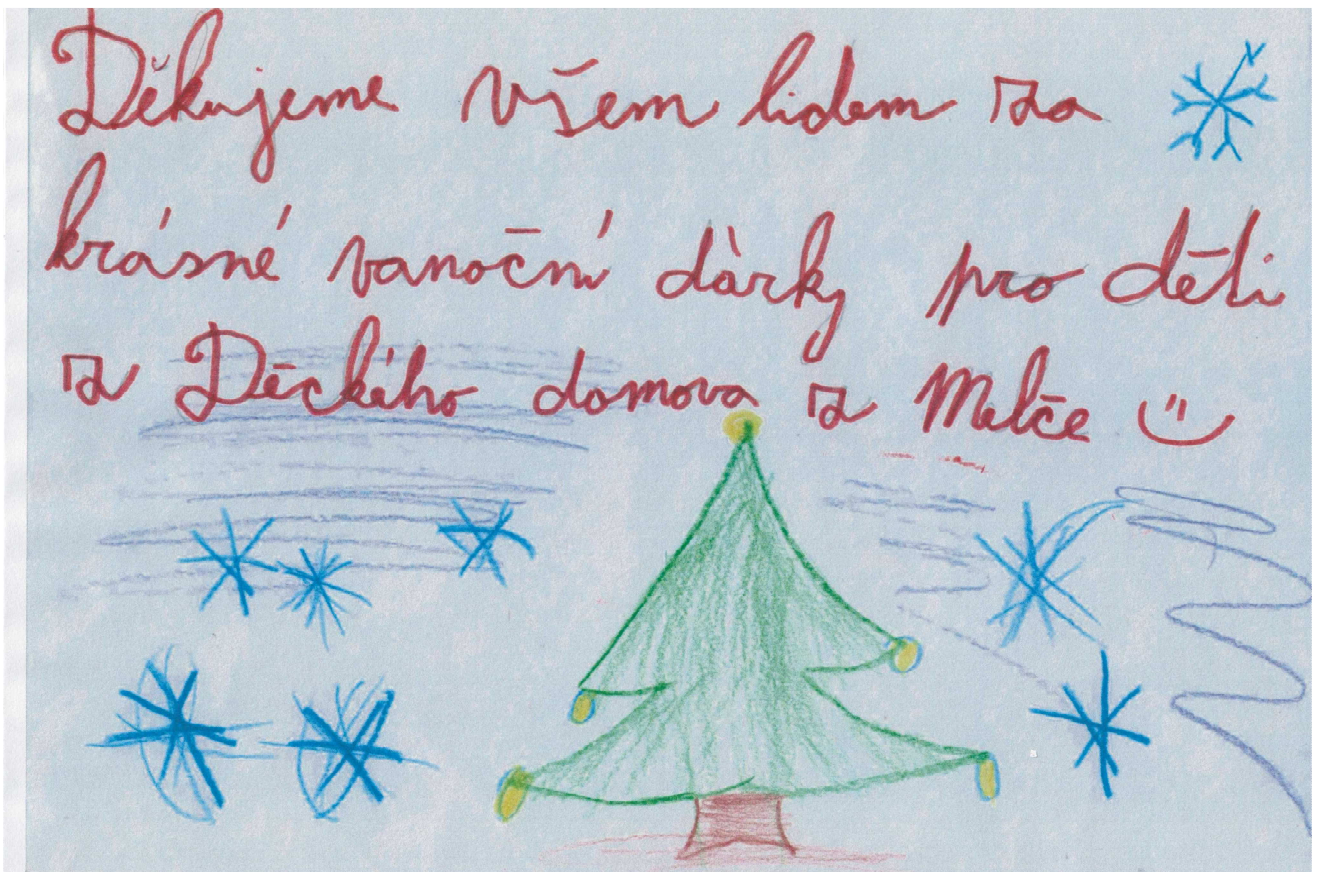 Děkujeme všem lidem za
krásné vanoční dárky pro děti
z Děckího domova z Melče